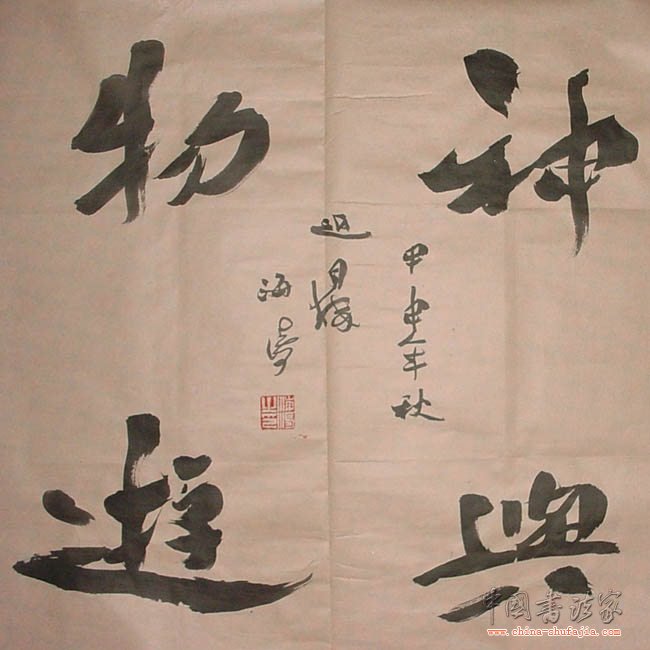 神與
物遊
甲申年秋
中國書法家
www.china-shufajia.com